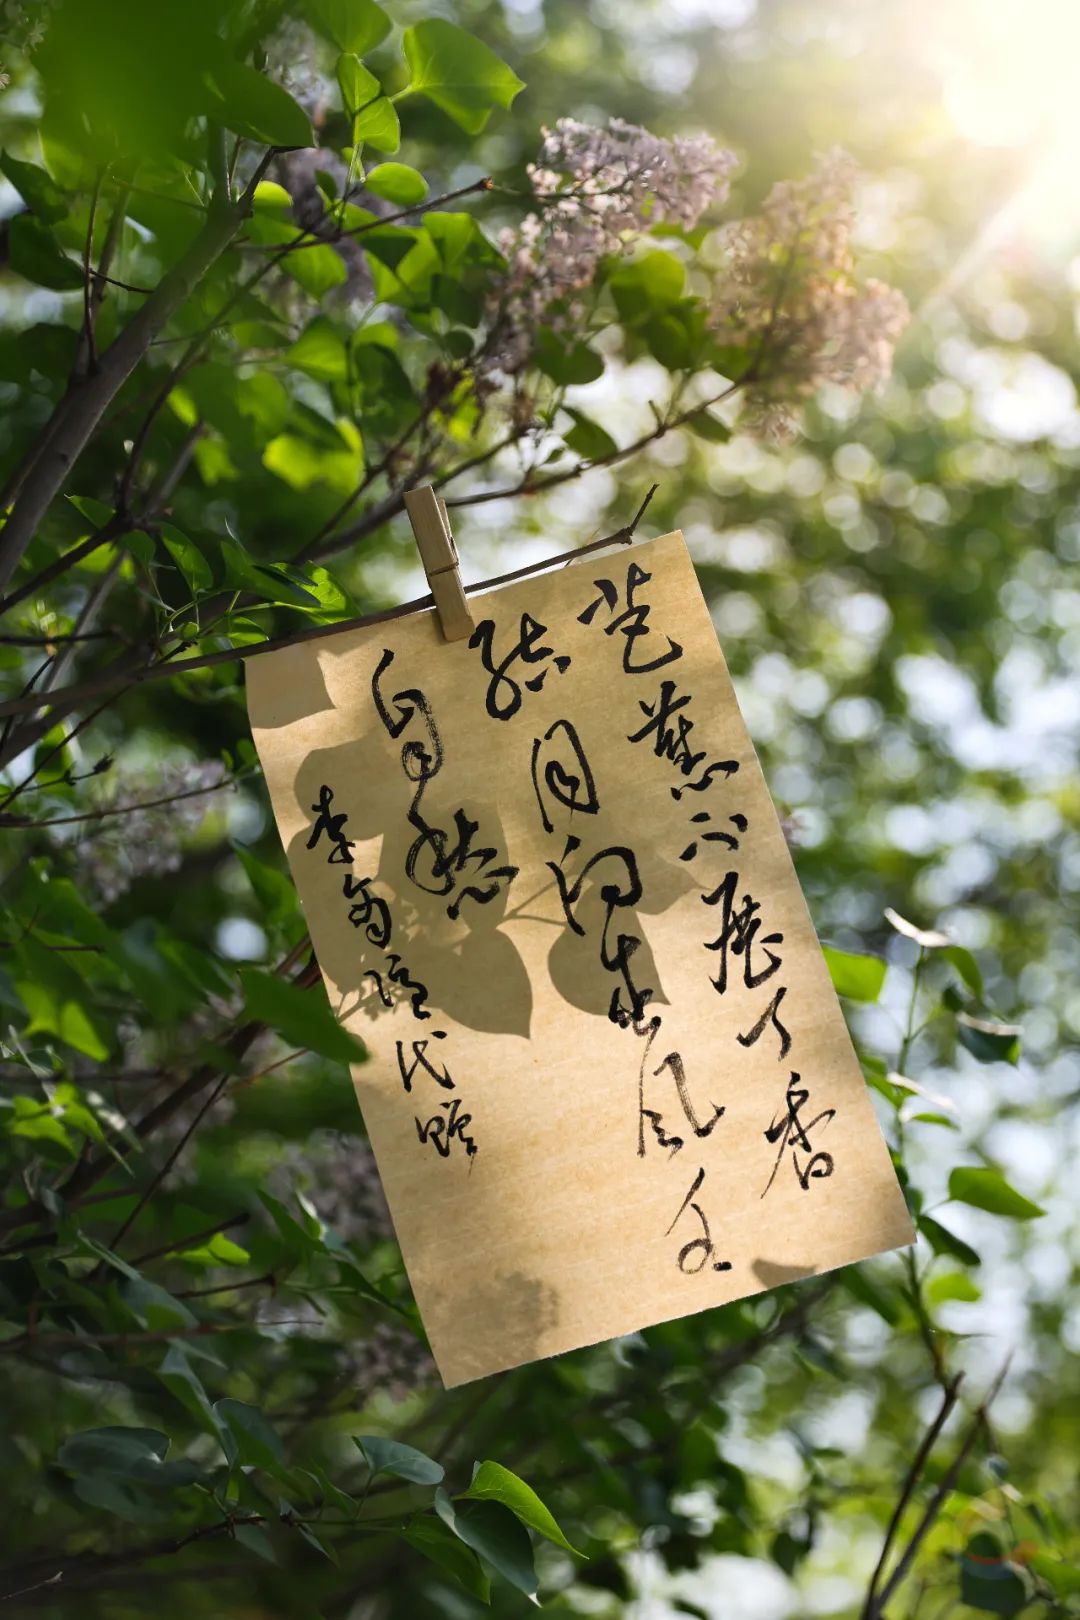 芭蕉不展丁香
结同向春风各
自愁
李商隐代赠